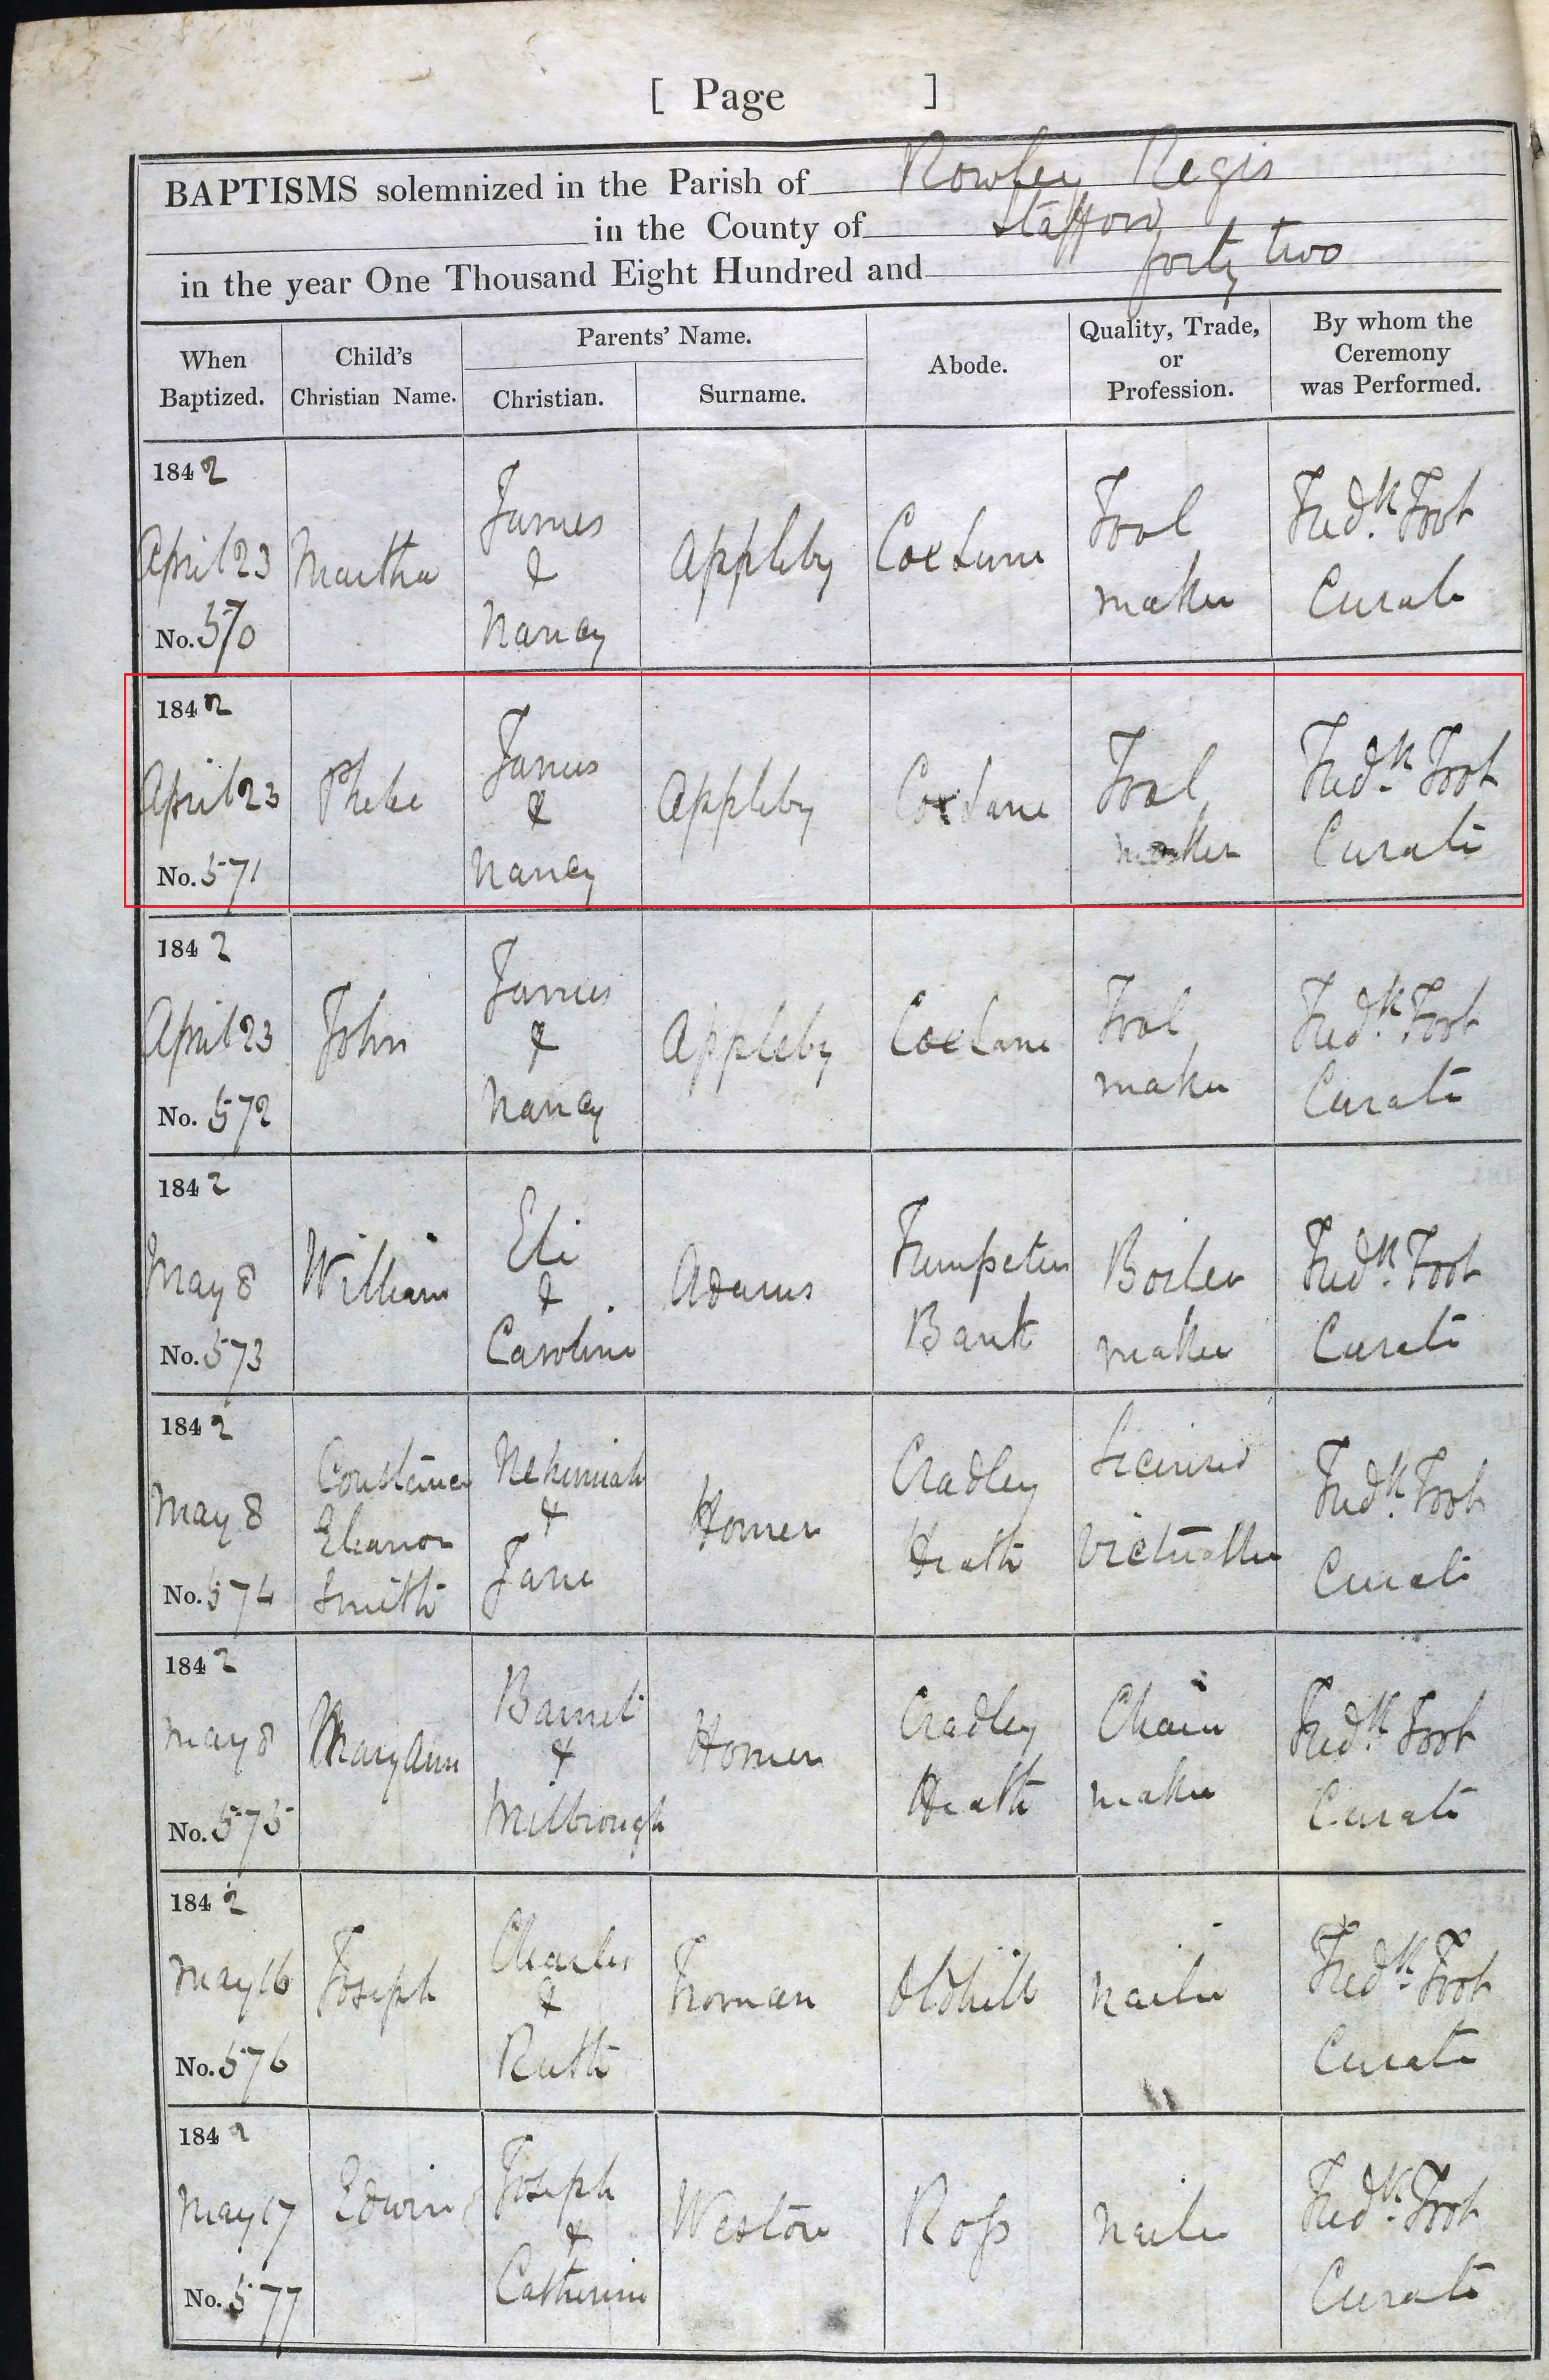 [ Page ]
BAPTISMS solemnized in the Parish of Rowley Regis
in the County of Stafford
in the year One Thousand Eight Hundred and forty two
When Baptized. Child's Christian Name. Parents' Name. Christian. Surname. Abode. Quality, Trade, or Profession. By whom the Ceremony was Performed.
1842
April 23 Martha James & Nancy Appleby Coxlane Tool maker Fredk. Foot Curate
No. 570
1842
April 23 Phebe James & Nancy Appleby Coxlane Tool maker Fredk. Foot Curate
No. 571
1842
April 23 John James & Nancy Appleby Coxlane Tool maker Fredk. Foot Curate
No. 572
1842
May 8 William Eli & Caroline Adams Trumpeters Bank Boiler maker Fredk. Foot Curate
No. 573
1842
May 8 Constance Eleanor Smith Nehemiah & Jane Homer Cradley Heath Licensed Victualler Fredk. Foot Curate
No. 574
1842
May 8 Mary Ann Barnet & Milbrough Homer Cradley Heath Chain maker Fredk. Foot Curate
No. 575
1842
May 16 Joseph Charles & Ruth Troman Oldhill Nailer Fredk. Foot Curate
No. 576
1842
May 17 Edwin Joseph & Catherine Weston Ross Nailer Fredk. Foot Curate
No. 577